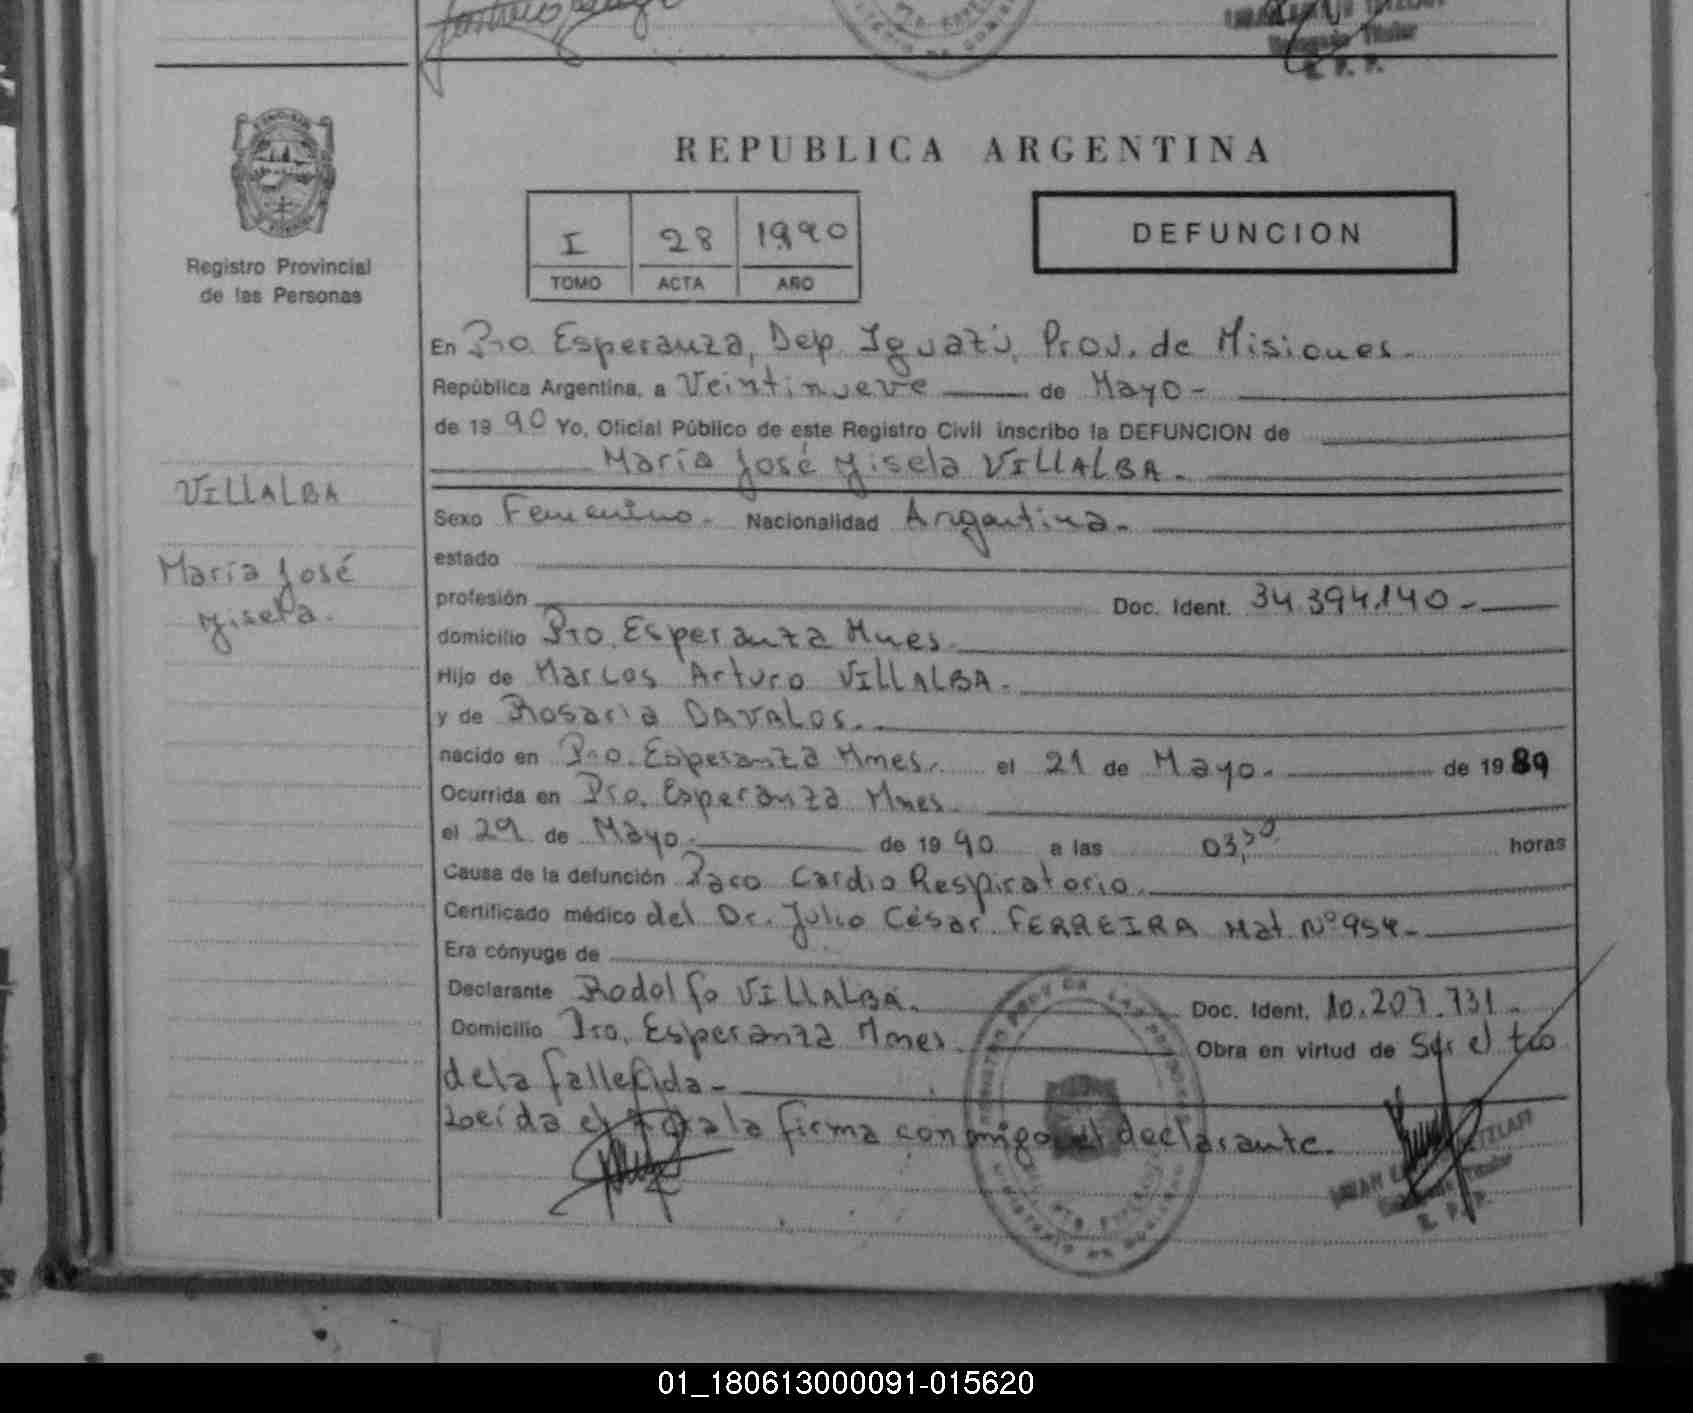 REPUBLICA ARGENTINA
I 28 1990
TOMO ACTA AÑO
DEFUNCION
Registro Provincial
de las Personas
En Pto. Esperanza, Dep. Iguazú, Prov. de Misiones.
República Argentina, a Veintinueve de Mayo-
de 1990 Yo, Oficial Público de este Registro Civil inscribo la DEFUNCION de
María José Yisela VILLALBA.
VILLALBA
María José
Yisela.
Sexo Femenino. Nacionalidad Argentina.
estado
profesión Doc. Ident. 34.394.140.-
domicilio Pto. Esperanza Mnes.
Hijo de Marcos Arturo VILLALBA.
y de Rosaria DAVALOS.
nacido en Pto. Esperanza Mnes. el 21 de Mayo. de 1989
Ocurrida en Pto. Esperanza Mnes.
el 29 de Mayo. de 1990 a las 03,30 horas
Causa de la defunción Paro Cardio Respiratorio.
Certificado médico del Dr. Julio César FERREIRA Mat. Nº 954-
Era cónyuge de
Declarante Rodolfo VILLALBA. Doc. Ident. 10.207.731.
Domicilio Pto. Esperanza Mnes. Obra en virtud de Ser el tío
de la fallecida-
Leída el Acta la firma conmigo el declarante.
Titular
R. P. P.
01_180613000091-015620